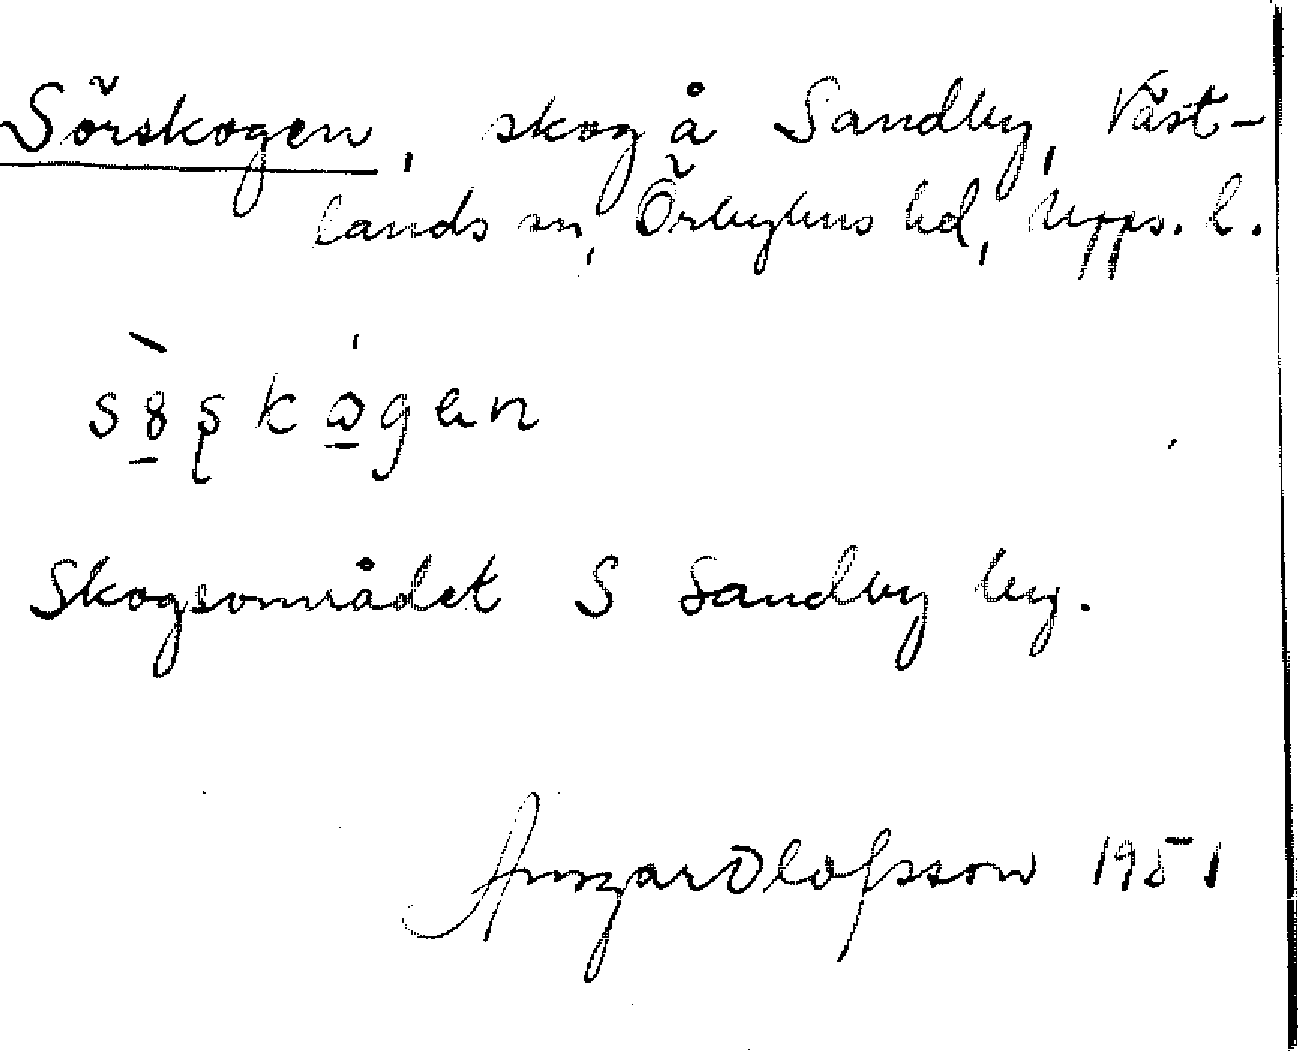 Sörskogen, skog å Sandby, Väst-
lands sn, Örbyhus hd, Upps. l.
sö̀skógen
Skogsområdet S Sandby by.
Ansgar Olofsson 1951